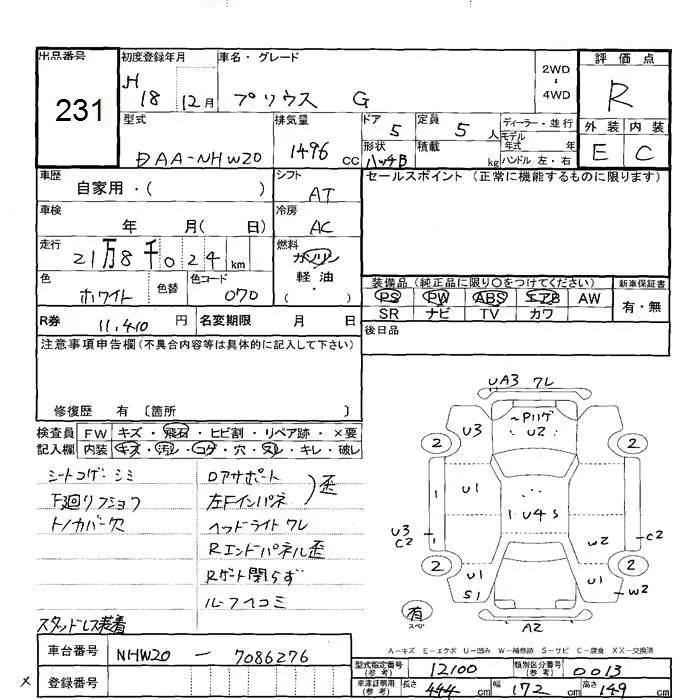 出品番号
231
初度登録年月
H 18 12月
車名・グレード
プリウス G
2WD
・
4WD
評価点
R
外装 内装
E C
型式
DAA-NHW20
排気量
1496 cc
ドア 5
定員 5 人
ディーラー・並行
モデル年式 年
ハンドル 左・右
形状 ハッチB
積載 kg
車歴
自家用・( )
シフト
AT
車検
年 月( 日)
冷房
AC
走行
21万8千024 km
燃料
ガソリン
軽油
( ・ )
色
ホワイト
色替
色コード
070
R券 11,410 円
名変期限 月 日
セールスポイント(正常に機能するものに限ります)
装備品(純正品に限り○をつけてください)
新車保証書
PS PW ABS エアB AW
SR ナビ TV カワ
有・無
後日品
注意事項申告欄(不具合内容等は具体的に記入して下さい)
修復歴 有〔箇所 〕
検査員 FW キズ・飛石・ヒビ割・リペア跡・×要
記入欄 内装 キズ・汚レ・コゲ・穴・スレ・キレ・破レ
シートコゲ・シミ
F廻リフショク
トノカバー欠
Rコアサポート
左Fインパネ
歪
ヘッドライトワレ
Rエンドパネル歪
Rゲート閉らず
ルーフヘコミ
スタッドレス装着
UA3 ワレ
〜Pハゲ
U2
U3
2 2
U1
1
U4 S
U3
C2
1
W2
C2
2 2
U1
S1
U1
W2
A2
有
スペア
A－キズ E－エクボ U－凹み W－補修跡 S－サビ C－腐食 XX－交換済
車台番号 NHW20 - 7086276
登録番号
×
型式指定番号(参考) 12100
類別区分番号(参考) 0013
車庫証明用(参考) 長さ 444 cm 幅 172 cm 高さ 149 cm